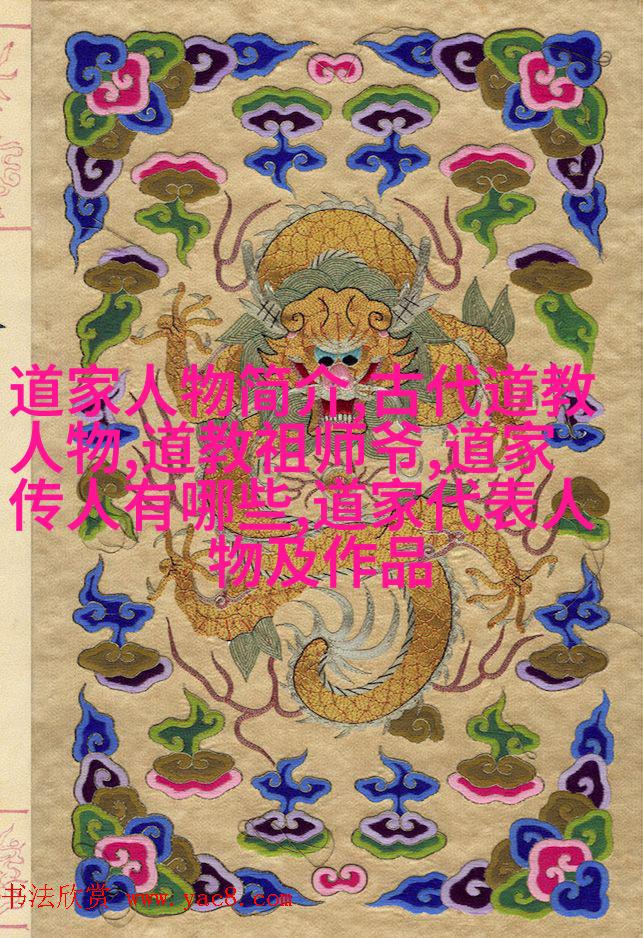 道家人物简介,古代道教
人物,道教祖师爷,道家
传人有哪些,道家代表人
物及作品
书法欣赏 www.yac8.com